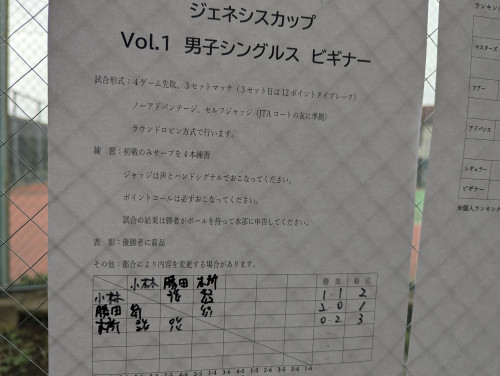 ジェネシスカップ
Vol.1 男子シングルス ビギナー
試合形式：4ゲーム先取、3セットマッチ（3セット目は12ポイントタイブレーク）
ノーアドバンテージ、セルフジャッジ（JTAコートの友に準拠）
ラウンドロビン方式で行います。
練 習：初戦のみサーブを4本練習
ジャッジは声とハンドシグナルでおこなってください。
ポイントコールは必ずおこなってください。
試合の結果は勝者がボールを持って本部に申告してください。
表 彰：優勝者に賞品
その他：都合により内容を変更する場合があります。
小林 勝田 本所 勝 敗 順位
小林 1-1 2
勝田 2-0 1
本所 0-2 3
マスターズ
ツアー
アドバンス
レギュラー
ビギナー
※個人ランキン